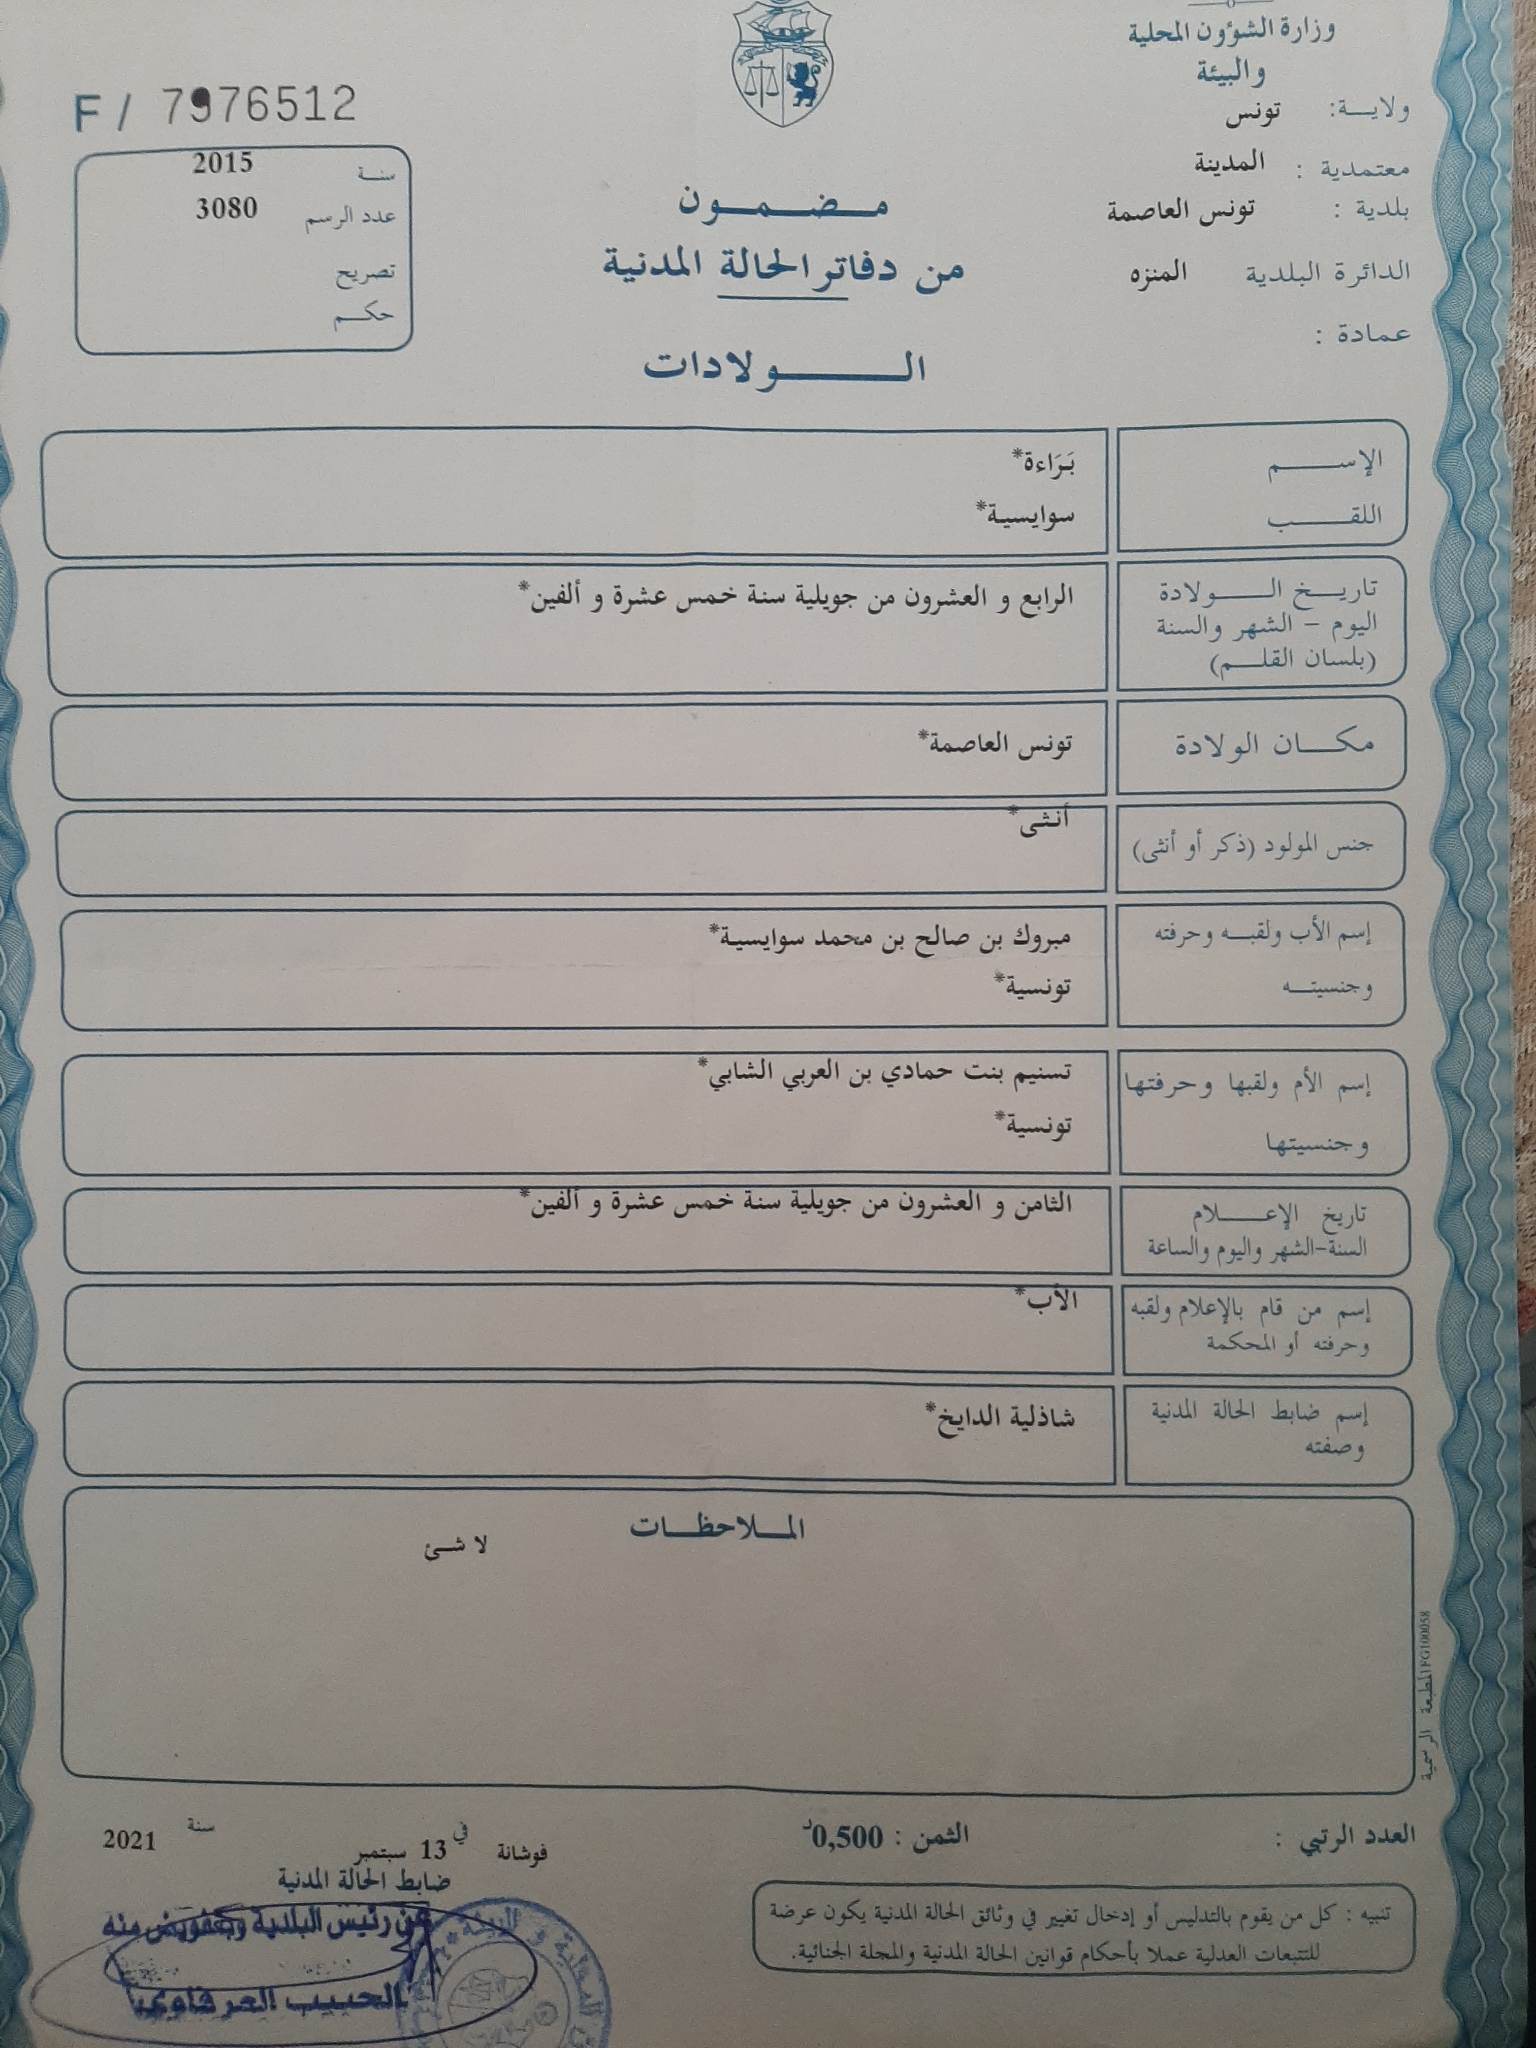 وزارة الشؤون المحلية
والبيئة
ولايــة: تونس
معتمدية : المدينة
بلدية : تونس العاصمة
الدائرة البلدية المنزه
عمادة :
F / 7976512
سنـة 2015
عدد الرسم 3080
تصريح
حكـم
مـضـمـون
من دفاتر الحالة المدنية
الـولادات
الإسـم بَرَاءة*
اللقـب سوايسية*
تاريـخ الـولادة الرابع و العشرون من جويلية سنة خمس عشرة و ألفين*
اليوم – الشهر والسنة
(بلسان القلـم)
مكـان الولادة تونس العاصمة*
جنس المولود (ذكر أو أنثى) أنثى*
إسم الأب ولقبـه وحرفته مبروك بن صالح بن محمد سوايسية*
وجنسيتـه تونسية*
إسم الأم ولقبها وحرفتها تسنيم بنت حمادي بن العربي الشابي*
وجنسيتها تونسية*
تاريخ الإعـلام الثامن و العشرون من جويلية سنة خمس عشرة و ألفين*
السنة-الشهر واليوم والساعة
إسم من قام بالإعلام ولقبه الأب*
وحرفته أو المحكمة
إسم ضابط الحالة المدنية شاذلية الدايخ*
وصفته
المـلاحظـات
لا شئ
المطبعة الرسمية 1FG100058
العدد الرتبي :
الثمن : 0,500د
فوشانة في 13 سبتمبر سنة 2021
ضابط الحالة المدنية
عن رئيس البلدية وبتفويض منه
الحبيب العرفاوي
تنبيه : كل من يقوم بالتدليس أو إدخال تغيير في وثائق الحالة المدنية يكون عرضة
للتتبعات العدلية عملا بأحكام قوانين الحالة المدنية والمجلة الجنائية.